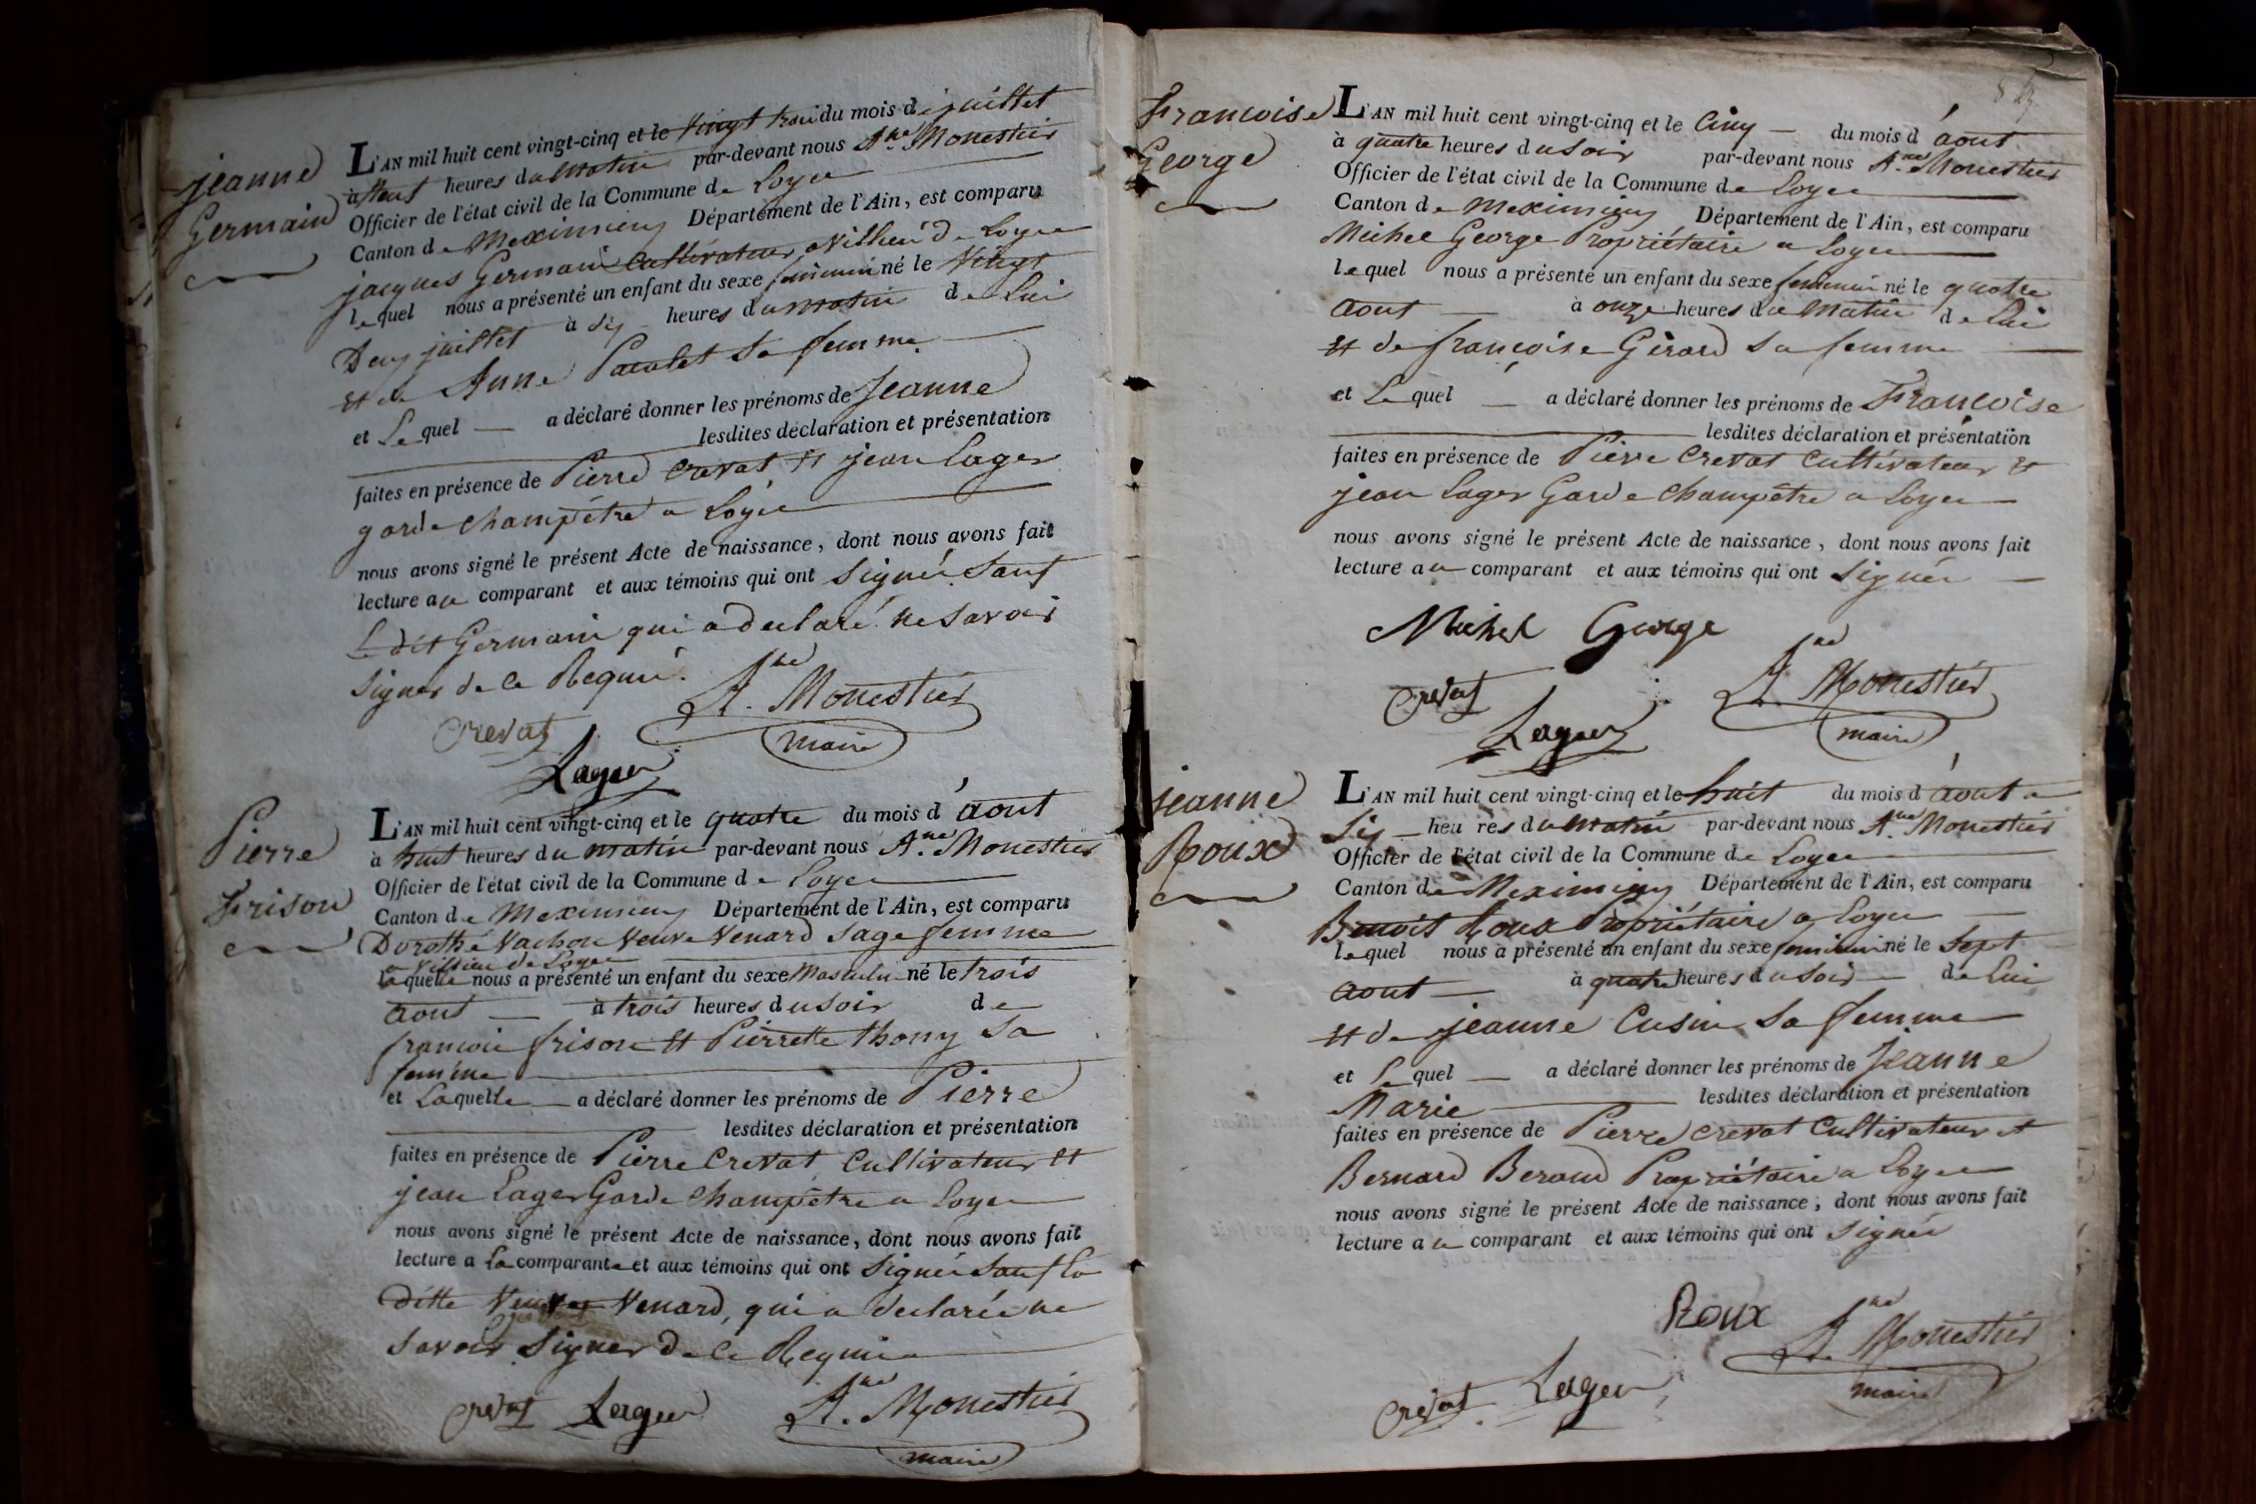 jeanne
Germain
L'AN mil huit cent vingt-cinq et le vingt trois du mois de juillet
à huit heures du matin par-devant nous A.ne Monestier
Officier de l'état civil de la Commune de Loyes
Canton de Meximieux Département de l'Ain, est comparu
jacques Germain cultivateur a Villieu de Loyes
lequel nous a présenté un enfant du sexe feminin né le Vingt
Deux juillet à six heures du matin de Lui
et de Anne Pacalet Sa femme
et Lequel a déclaré donner les prénoms de Jeanne
lesdites déclaration et présentation
faites en présence de Pierre Crevat et jean Lager
garde champêtre a Loyes
nous avons signé le présent Acte de naissance, dont nous avons fait
lecture au comparant et aux témoins qui ont Signés Sauf
Ledit Germain qui a declaré ne Savoir
Signer de ce Requis.
A.ne Monestier
Crevat
maire
Lager
Pierre
Frison
L'AN mil huit cent vingt-cinq et le quatre du mois d'aout
à huit heures du matin par-devant nous A.ne Monestier
Officier de l'état civil de la Commune de Loyes
Canton de Meximieux Département de l'Ain, est comparu
Dorothé Vachon Veuve Venard Sage femme
a Villieu de Loyes
laquelle nous a présenté un enfant du sexe Masculin né le trois
aout à trois heures du soir de
francois frison et Pierrette thomy Sa
femme
et Laquelle a déclaré donner les prénoms de Pierre
lesdites déclaration et présentation
faites en présence de Pierre Crevat Cultivateur et
jean Lager Garde champêtre a Loyes
nous avons signé le présent Acte de naissance, dont nous avons fait
lecture a La comparante et aux témoins qui ont Signés Sauf La
ditte Veuve Venard, qui a declarée ne
Savoir Signer De ce Requise
Crevat Lager A.ne Monestier
maire
Francoise
George
L'AN mil huit cent vingt-cinq et le Cinq du mois d'aout
à quatre heures du soir par-devant nous A.ne Monestier
Officier de l'état civil de la Commune de Loyes
Canton de Meximieux Département de l'Ain, est comparu
Michel George Propriétaire a Loyes
lequel nous a présenté un enfant du sexe feminin né le quatre
aout à onze heures du Matin de Lui
et de françoise Gérard Sa femme
et Lequel a déclaré donner les prénoms de Francoise
lesdites déclaration et présentation
faites en présence de Pierre Crevat Cultivateur et
jean Lager Garde champêtre a Loyes
nous avons signé le présent Acte de naissance, dont nous avons fait
lecture au comparant et aux témoins qui ont Signés
Michel George
Crevat A.ne Monestier
Lager maire
jeanne
Roux
L'AN mil huit cent vingt-cinq et le huit du mois d'aout a
Six heures du matin par-devant nous A.ne Monestier
Officier de l'état civil de la Commune de Loyes
Canton de Meximieux Département de l'Ain, est comparu
Benoit Roux Propriétaire a Loyes
lequel nous a présenté un enfant du sexe feminin né le Sept
aout à quatre heures du Soir de Lui
et de jeanne Cusin Sa femme
et Lequel a déclaré donner les prénoms de Jeanne
Marie lesdites déclaration et présentation
faites en présence de Pierre Crevat Cultivateur et
Bernard Beraud Propriétaire a Loyes
nous avons signé le présent Acte de naissance, dont nous avons fait
lecture au comparant et aux témoins qui ont Signés
Roux A.ne Monestier
Crevat Lager maire